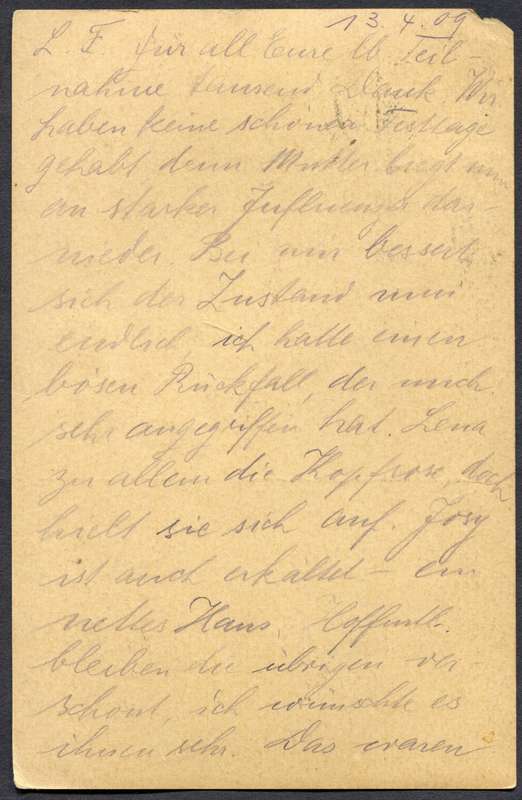 13.4.09
L. F. für all Eure lb. Teil-
nahme tausend Dank. Wir
haben keine schönen Festtage
gehabt denn Mutter liegt nun
an starker Influenza dar-
nieder. Bei mir bessert
sich der Zustand nun
endlich, ich hatte einen
bösen Rückfall, der mich
sehr angegriffen hat. Lena
zu allem die Kopfrose, doch
hielt sie sich auf. Josy
ist auch erkältet – ein
nettes Haus. Hoffentl.
bleiben die übrigen ver-
schont, ich wünschte es
ihnen sehr. Das waren